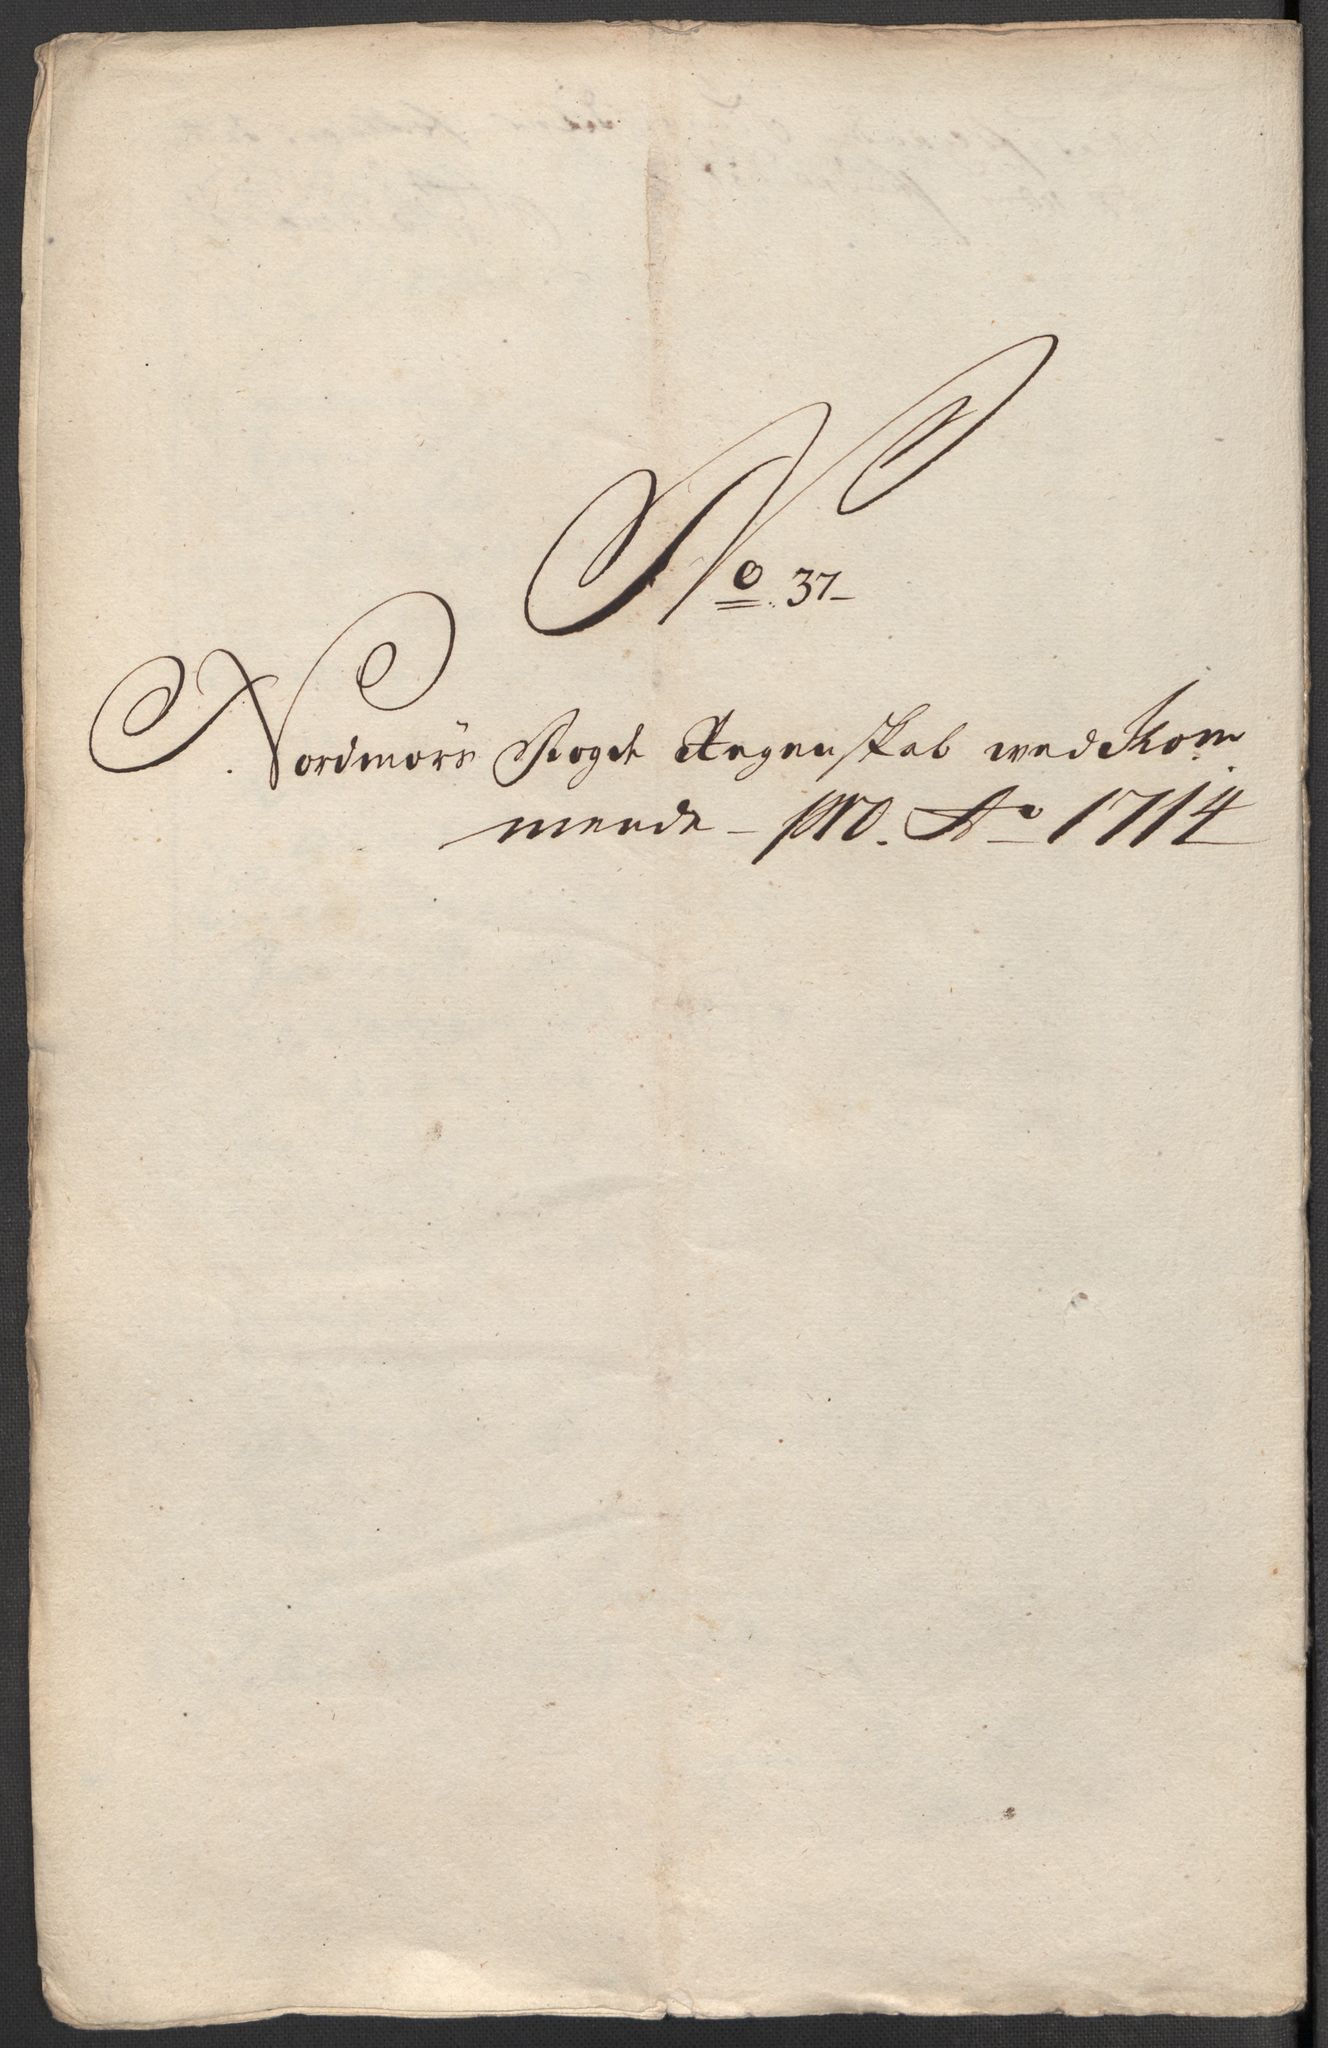 No. 37-
Nordmørs Fogde Regenskab wedkom
mende - pro. Ao 1714